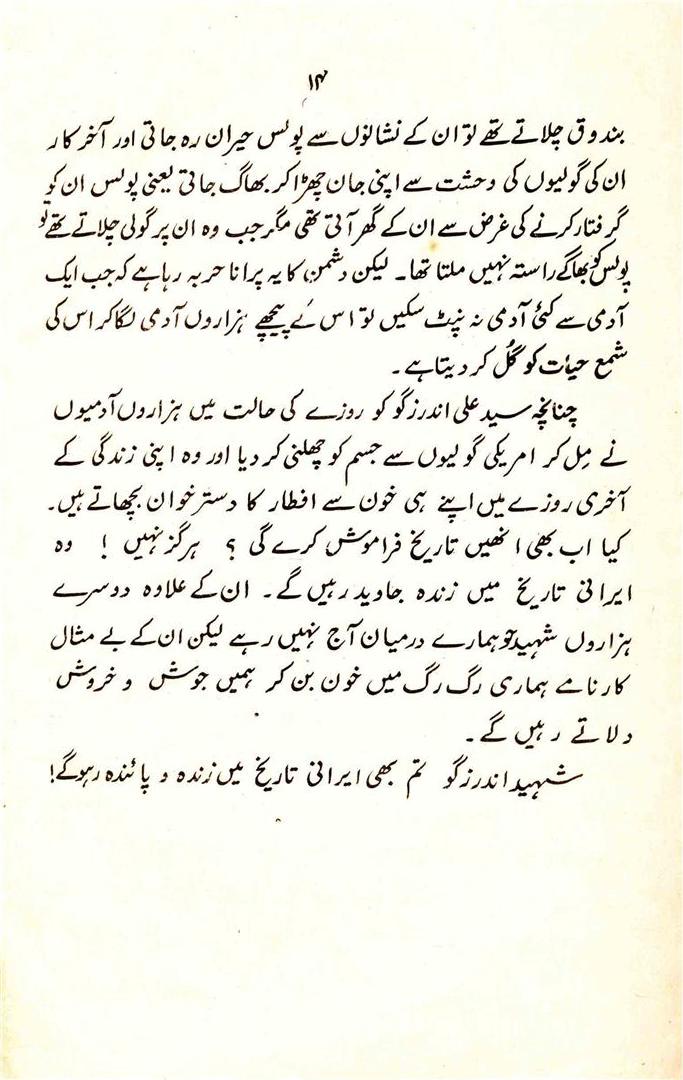 ۱۴
بندوق چلاتے تھے تو ان کے نشانوں سے پولس حیران رہ جاتی اور آخر کار
ان کی گولیوں کی وحشت سے اپنی جان چھڑا کر بھاگ جاتی یعنی پولس ان کو
گرفتار کرنے کی غرض سے ان کے گھر آتی تھی مگر جب وہ ان پر گولی چلاتے تھے تو
پولس کو بھاگے راستہ نہیں ملتا تھا۔ لیکن دشمن کا یہ پرانا حربہ رہا ہے کہ جب ایک
آدمی سے کئی آدمی نہ نپٹ سکیں تو اس کے پیچھے ہزاروں آدمی لگا کر اس کی
شمع حیات کو گُل کر دیتا ہے۔
چنانچہ سید علی اندرزگو کو روزے کی حالت میں ہزاروں آدمیوں
نے مِل کر امریکی گولیوں سے جسم کو چھلنی کر دیا اور وہ اپنی زندگی کے
آخری روزے میں اپنے ہی خون سے افطار کا دسترخوان بچھاتے ہیں۔
کیا اب بھی انھیں تاریخ فراموش کرے گی ؟ ہرگز نہیں ! وہ
ایرانی تاریخ میں زندہ جاوید رہیں گے۔ ان کے علاوہ دوسرے
ہزاروں شہید جو ہمارے درمیان آج نہیں رہے لیکن ان کے بے مثال
کارنامے ہماری رگ رگ میں خون بن کر ہمیں جوش و خروش
دلاتے رہیں گے۔
شہید اندرزگو تم بھی ایرانی تاریخ میں زندہ و پائندہ رہو گے!